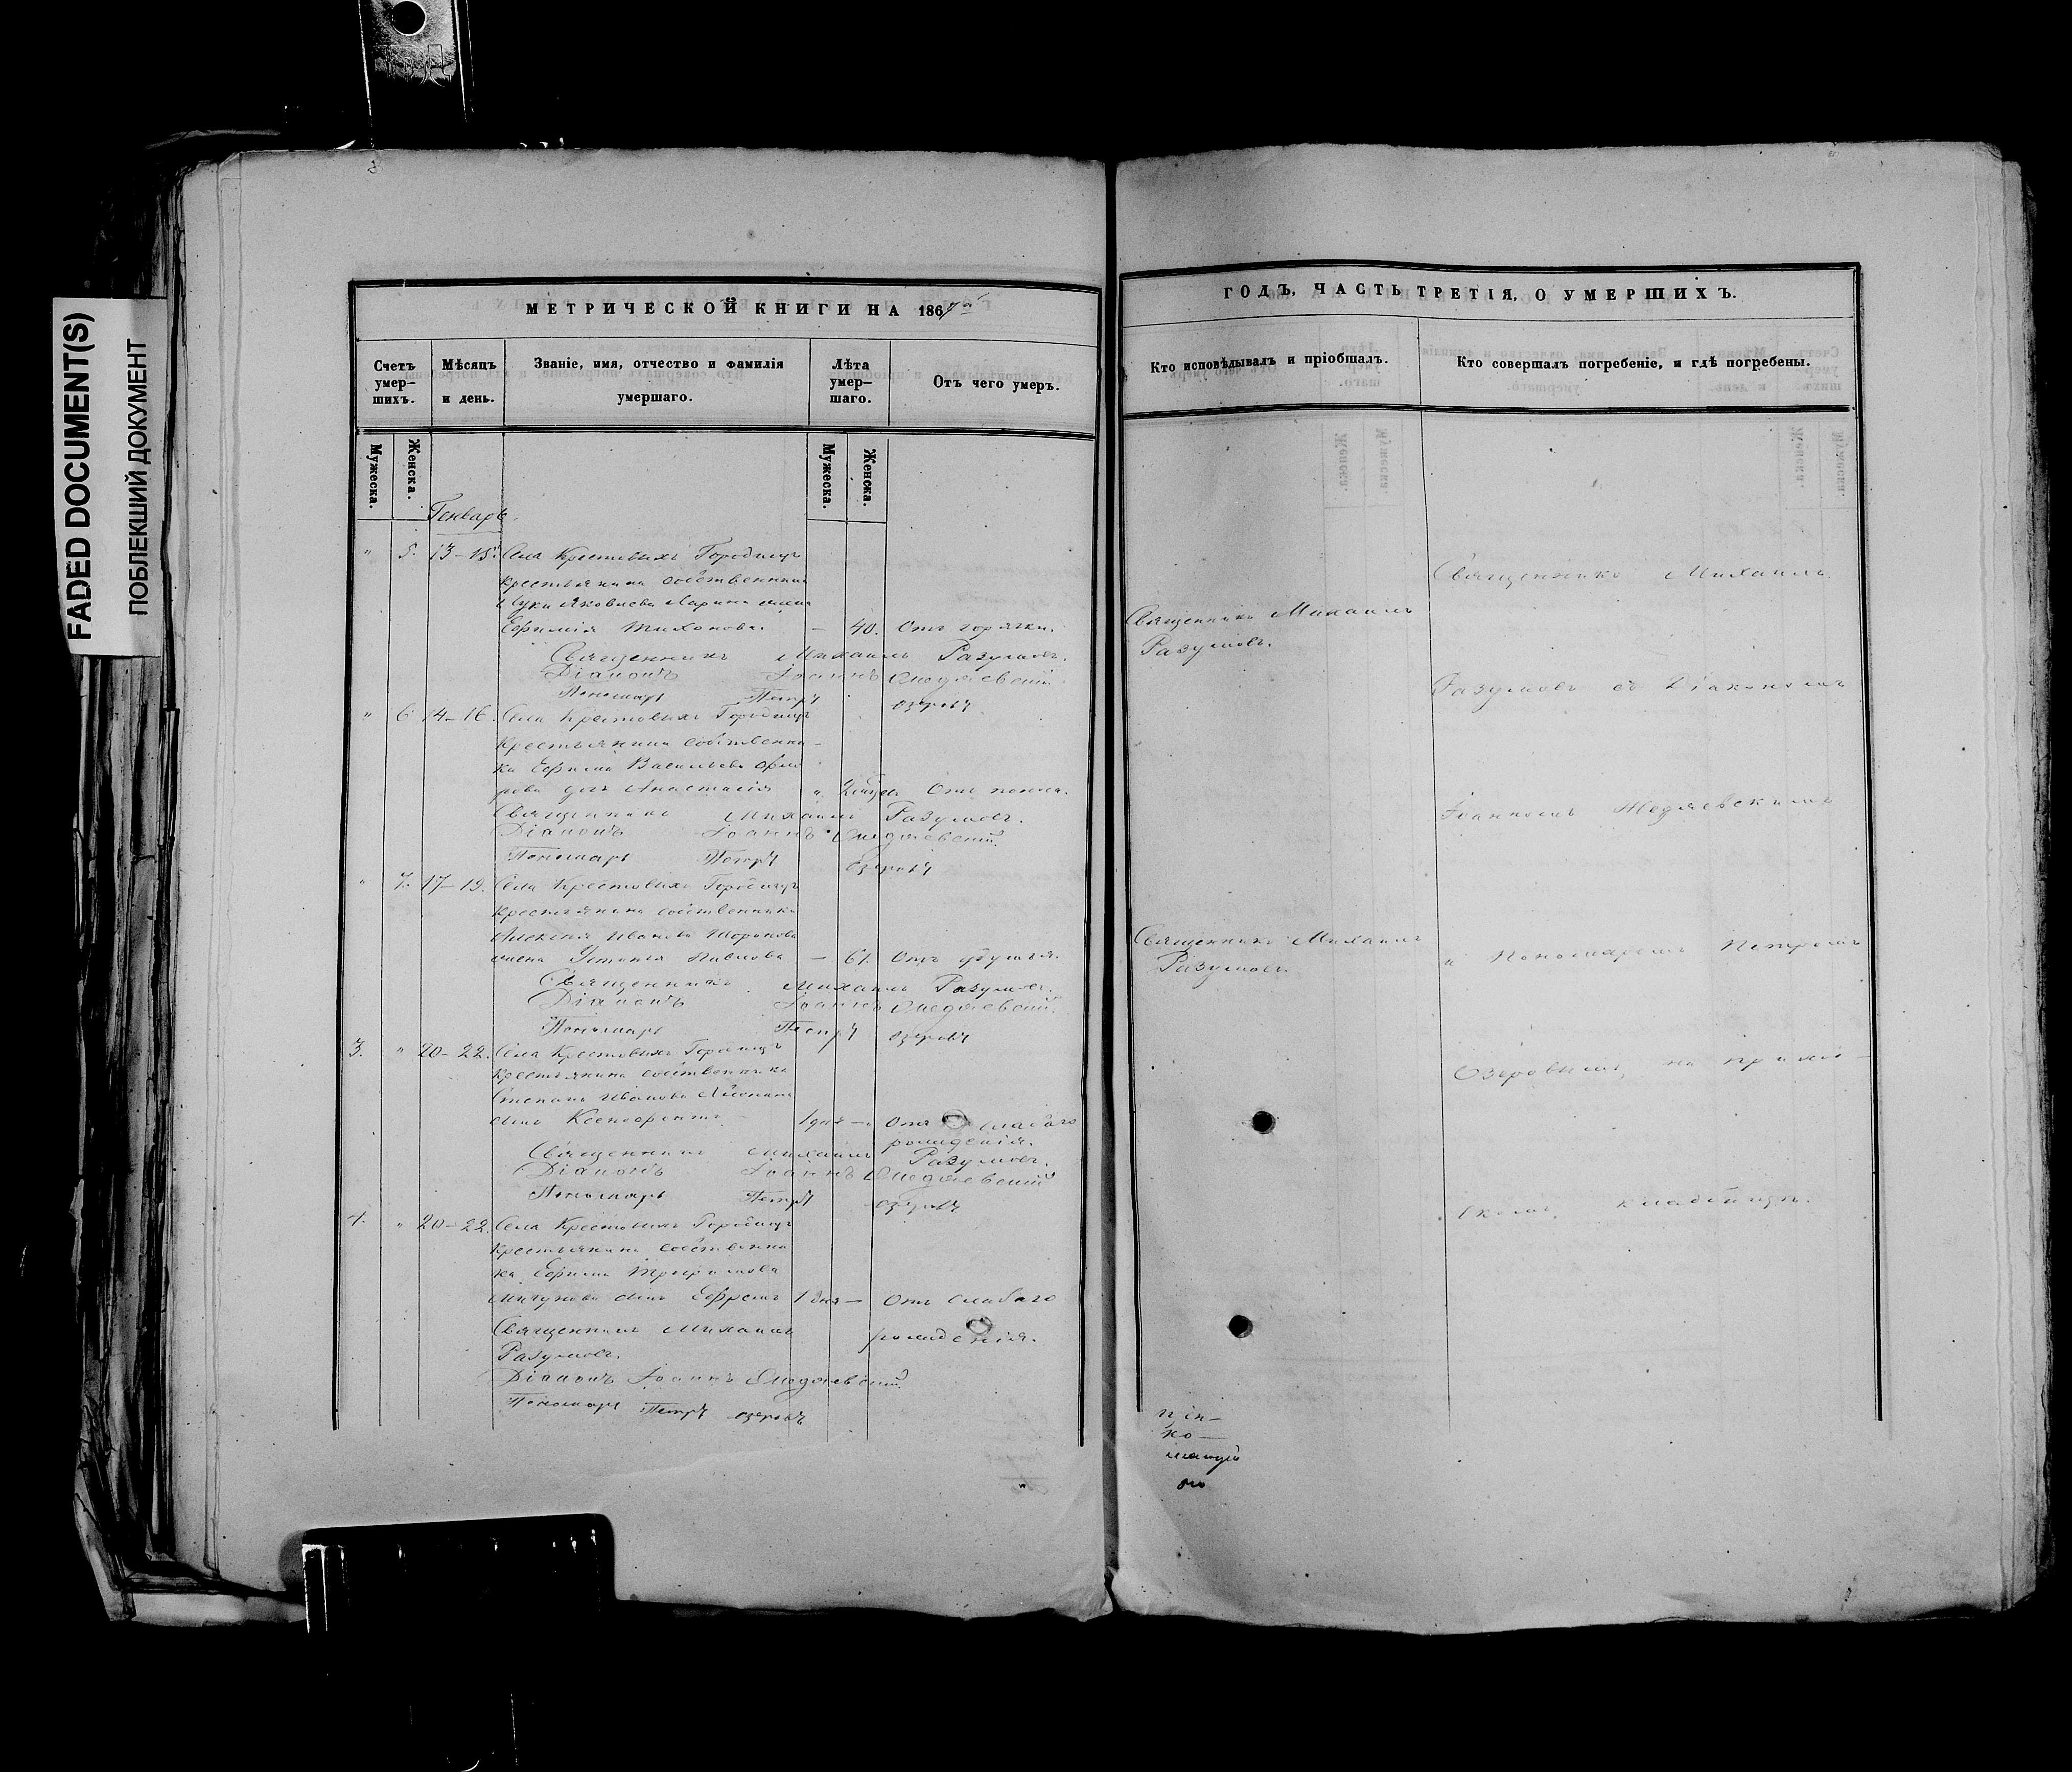 FADED DOCUMENT(S)
ПОБЛЕКШИЙ ДОКУМЕНТ
МЕТРИЧЕСКОЙ КНИГИ НА 186
Счетъ умер-шихъ.
Мѣсяцъ и день.
Званіе, имя, отчество и фамилія умершаго.
Лѣта умер-шаго.
Отъ чего умеръ.
Мужеска.
Женска.
Мужеска.
Женска.
Генварь.
" 5. 13-15. Села Крестовыхъ Городищъ
крестьянина собственника
Луки Яковлева Ларина жена
Ефимія Тихонова. — 40. Отъ горячки.
Священникъ Михаилъ Разумовъ.
Діаконъ Іоаннъ
Пономарь Петръ Озеровъ
" 6 14-16. Села Крестовыхъ Городищъ
крестьянина собственни-
ка Ефима Васильева
дочь Анастасія " Отъ поноса.
Священникъ Михаилъ Разумовъ.
Діаконъ Іоаннъ
Пономарь Петръ Озеровъ
" 7. 17-19. Села Крестовыхъ Городищъ
крестьянина собственника
Алексѣя Иванова
жена Устинья Павлова — 61. Отъ удушья.
Священникъ Михаилъ Разумовъ.
Діаконъ Іоаннъ
Пономарь Петръ Озеровъ
3. " 20-22. Села Крестовыхъ Городищъ
крестьянина собственника
Степана Иванова
сынъ Ксенофонтъ 1 дня — Отъ слабаго
рожденія.
Священникъ Михаилъ Разумовъ.
Діаконъ Іоаннъ
Пономарь Петръ Озеровъ
4. " 20-22. Села Крестовыхъ Городищъ
крестьянина собственни-
ка Ефима Трофимова
сынъ Ефремъ 1 дня — Отъ слабаго
рожденія.
Священникъ Михаилъ
Разумовъ.
Діаконъ Іоаннъ
Пономарь Петръ Озеровъ
ГОДЪ, ЧАСТЬ ТРЕТІЯ, О УМЕРШИХЪ.
Кто исповѣдывалъ и пріобщалъ.
Кто совершалъ погребеніе, и гдѣ погребены.
Священникъ Михаилъ
Разумовъ.
Священникъ Михаилъ
Разумовъ.
Священникъ Михаилъ
Разумовъ съ Діакономъ
Іоанномъ
и Пономаремъ Петромъ
Озеровымъ, на прихо-
скомъ кладбищѣ.